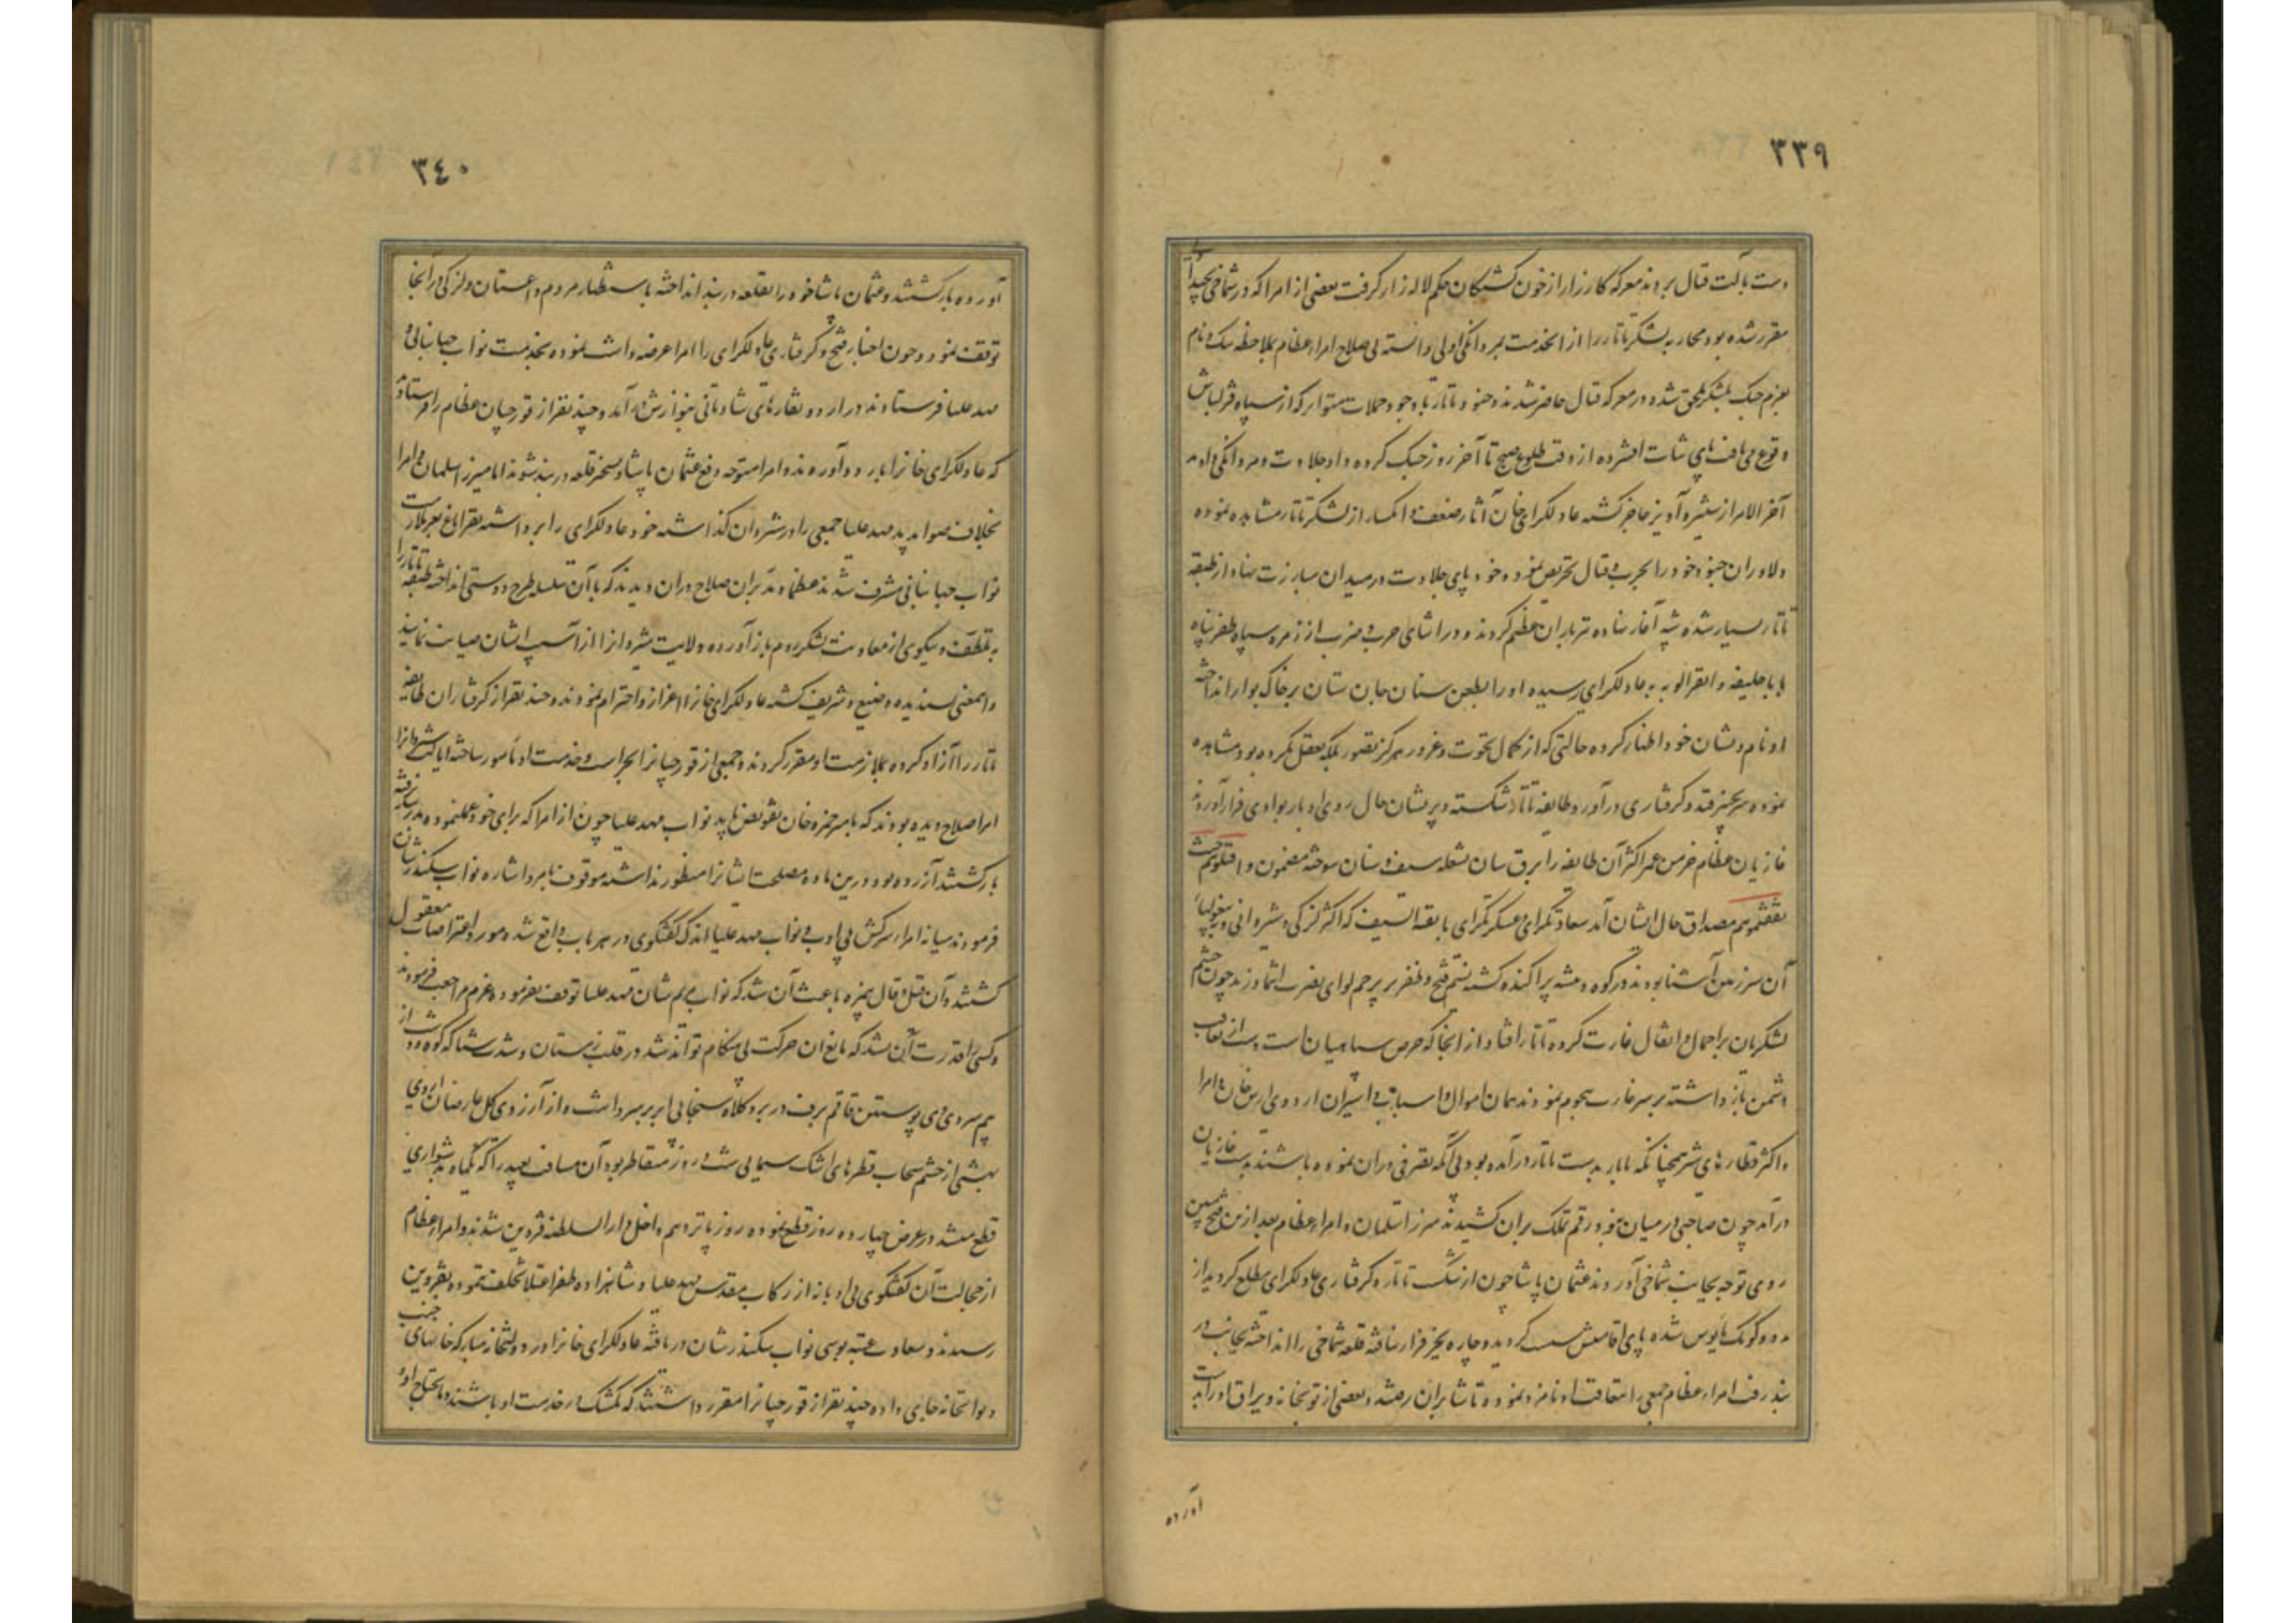 ۳۳۹
دست بآلت قتال بردند معرکه کارزار از خون کشتگان حکم لاله زار گرفت بعضی از امرا که در شماخی
مقرر شده بود محاربه لشکر تاتار را از انخدمت بمردانگی اولی دانسته بی صلاح امراء عظام بملاحظه ننگ و نام
بعزم جنگ بلشکر ملحق شده در معرکه قتال حاضر شدند و جنود تاتار با وجود حملات متواتر که از سپاه قزلباش
وقوع می یافت پای ثبات افشرده از وقت طلوع صبح تا آخر روز جنگ کرده داد جلادت و مردانگی دادند
آخر الامر از ستیز و آویز عاجز گشته عادلکرای خان آثار ضعف و انکسار از لشکر تاتار مشاهده نموده
دلاوران جنود خود را بحرب و قتال تحریص نمود و خود پای جلادت در میدان مبارزت نهاد از طبقه
تاتار بسیار شده شپه آغاز نهاده تیرباران عظیم کردند و در اثنای حرب و ضرب از زمره سپاه ظفر پناه
بابا خلیفه به عادلکرای رسیده او را بطعن سنان جان ستان بر خاک بوار انداخته
او نام و نشان خود اظهار کرده حالتی که از کمال نخوت و غرور هرگز تصور بلکه تعقل نکرده بود مشاهده
نموده سرپنجه گرفتاری درآورد طایفه تاتار شکسته و پریشان حال روی ادبار بوادی فرار آوردند
غازیان عظام خرمن عمر اکثر آن طایفه را برق سان بشعله سیف و سنان سوخته مضمون واقتلوهم حیث
ثقفتموهم مصداق حال ایشان آمد سعادتکرای و عسکرکرای با بقیة السیف که اکثر لزکی و شیروانی و
آن سرزمین آشنا بودند در کوه و بیشه پراکنده گشته نسیم فتح و ظفر بر پرچم لوای نصرت انتما وزید چون چشم
لشکریان بر احمال و اثقال غارت کرده تاتار افتاد از آنجا که حرص سپاهیان است دست از تعاقب
دشمن باز داشته بر سر غارت هجوم نمودند همان اموال و اسباب و اسیران اردوی ارس خان و امرا
و اکثر قطارهای شتر همچنانکه با بار بدست تاتار درآمده بود بی آنکه تصرفی در آن نموده باشند بدست غازیان
درآمد چون صاحبی در میان نبود رقم تملک بران کشیدند میرزا سلمان و امراء عظام بعد از این فتح مبین
روی توجه بجانب شماخی آوردند عثمان پاشا چون از شکست تاتار و گرفتاری عادلکرای مطلع گردید از
مدد و کومک مأیوس شده پای اقامتش سست گردید و چاره بجز فرار نیافته قلعه شماخی را انداخته بجانب در
بند رفت امراء عظام جمعی را بتعاقب او نامزد نموده تا شابران رفتند و بعضی از توپخانه و یراق او را بدست
آورده
۳۴۰
آورده بازگشتند و عثمان پاشا خود را بقلعه دربند انداخته باستظهار مردم داغستان و لزکی در آنجا
توقف نمود و چون اخبار فتح و گرفتاری عادلکرای را امرا عرضه داشت نموده بخدمت نواب جهانبانی و
مهد علیا فرستادند در اردو نقاره‌های شادمانی بنوازش درآمد و چند نفر از قورچیان عظام را فرستادند
که عادلکرای خان را باردو آورند و امرا متوجه دفع عثمان پاشا و تسخیر قلعه دربند شوند اما میرزا سلمان و امرا
بخلاف صوابدید مهد علیا جمعی را در شیروان گذاشته خود عادلکرای را برداشته بقراباغ بعز ملازمت
نواب جهانبانی مشرف شدند مهد علیا در آن صلاح دولت دیدند که با آن سلسله طرح دوستی انداخته طبقه تاتار را
به تلطف و نیکویی از معاونت لشکر روم باز آورده ولایت شیروان را از آسیب ایشان صیانت نمایند
و این معنی پسندیده وضیع و شریف گشته عادلکرای خان را اعزاز و احترام نمودند و چند نفر از گرفتاران طایفه
تاتار را آزاد کرده بملازمت او مقرر کردند و جمعی از قورچیان را بحراست و خدمت او مأمور ساخته ایالت شیروان را
امرا صلاح دیده بودند که بامیر حمزه خان تفویض یابد نواب مهد علیا چون از امرا که برای خود عمل نموده
بازگشتند آزرده بود درین ماده مصلحت ایشان را منظور نداشته موقوف بامر و اشاره نواب سکندر شان
فرمودند میانه امراء سرکش بی ادب و نواب مهد علیا اندک گفتگوی در هر باب واقع شده مورد اعتراضات معقول
گشتند و آن قیل و قال باعث آن شد که نواب مریم شان مهد علیا توقف نفرموده عزم مراجعت فرمودند
و کسی را قدرت آن نشد که مانع آن حرکت بی هنگام تواند شد در قلب زمستان و شدت شتا که کوه و دشت از
بیم سردی دی پوستین قاقم برف در بر و کلاه سنجابی ابر بر سر داشت و از آرزوی گل عارضان اردی
بهشتی از چشم سحاب قطره‌های اشک سیمابی شب و روز متقاطر بود آن مسافت بعید را که یکماه بدشواری
قطع میشد در عرض چهارده روز قطع نموده روز پانزدهم داخل دار السلطنه قزوین شدند و امراء عظام
از خجالت آن گفتگوی بی ادبانه از رکاب مقدس مهد علیا و شاهزاده ظفر اعتلا تخلف ننموده بقزوین
رسیدند و سعادت عتبه بوسی نواب سکندر شان دریافته عادلکرای خان را در دولتخانه مبارکه خانهای جنب
دیوانخانه جای داده چند نفر از قورچیان را مقرر داشتند که بکشیک در خدمت او باشند و مایحتاج او